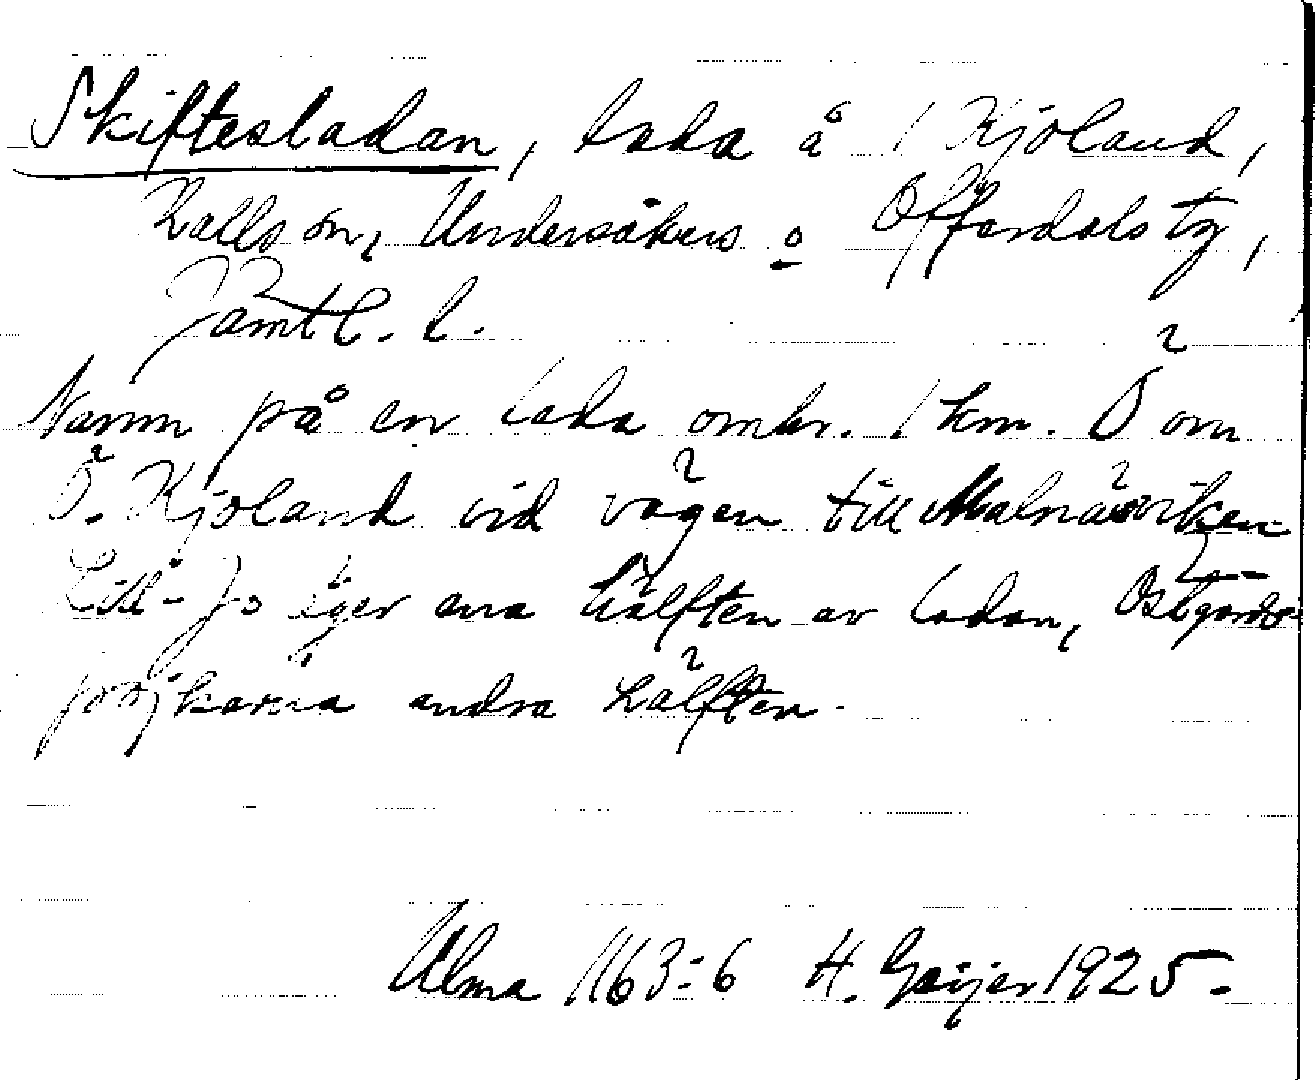 Skiftesladan, lada å 1 Kjoland,
Kalls sn, Undersåkers o Offerdals tg,
Jämtl. l.
Namn på en lada omkr. 1 km. Ö om
Ö. Kjoland vid vägen till Malnäsviken
Litl-Jo äger ena hälften av ladan, Östgårds-
pojkarna andra hälften.
Ulma 1163:6 H. Geijer 1925.